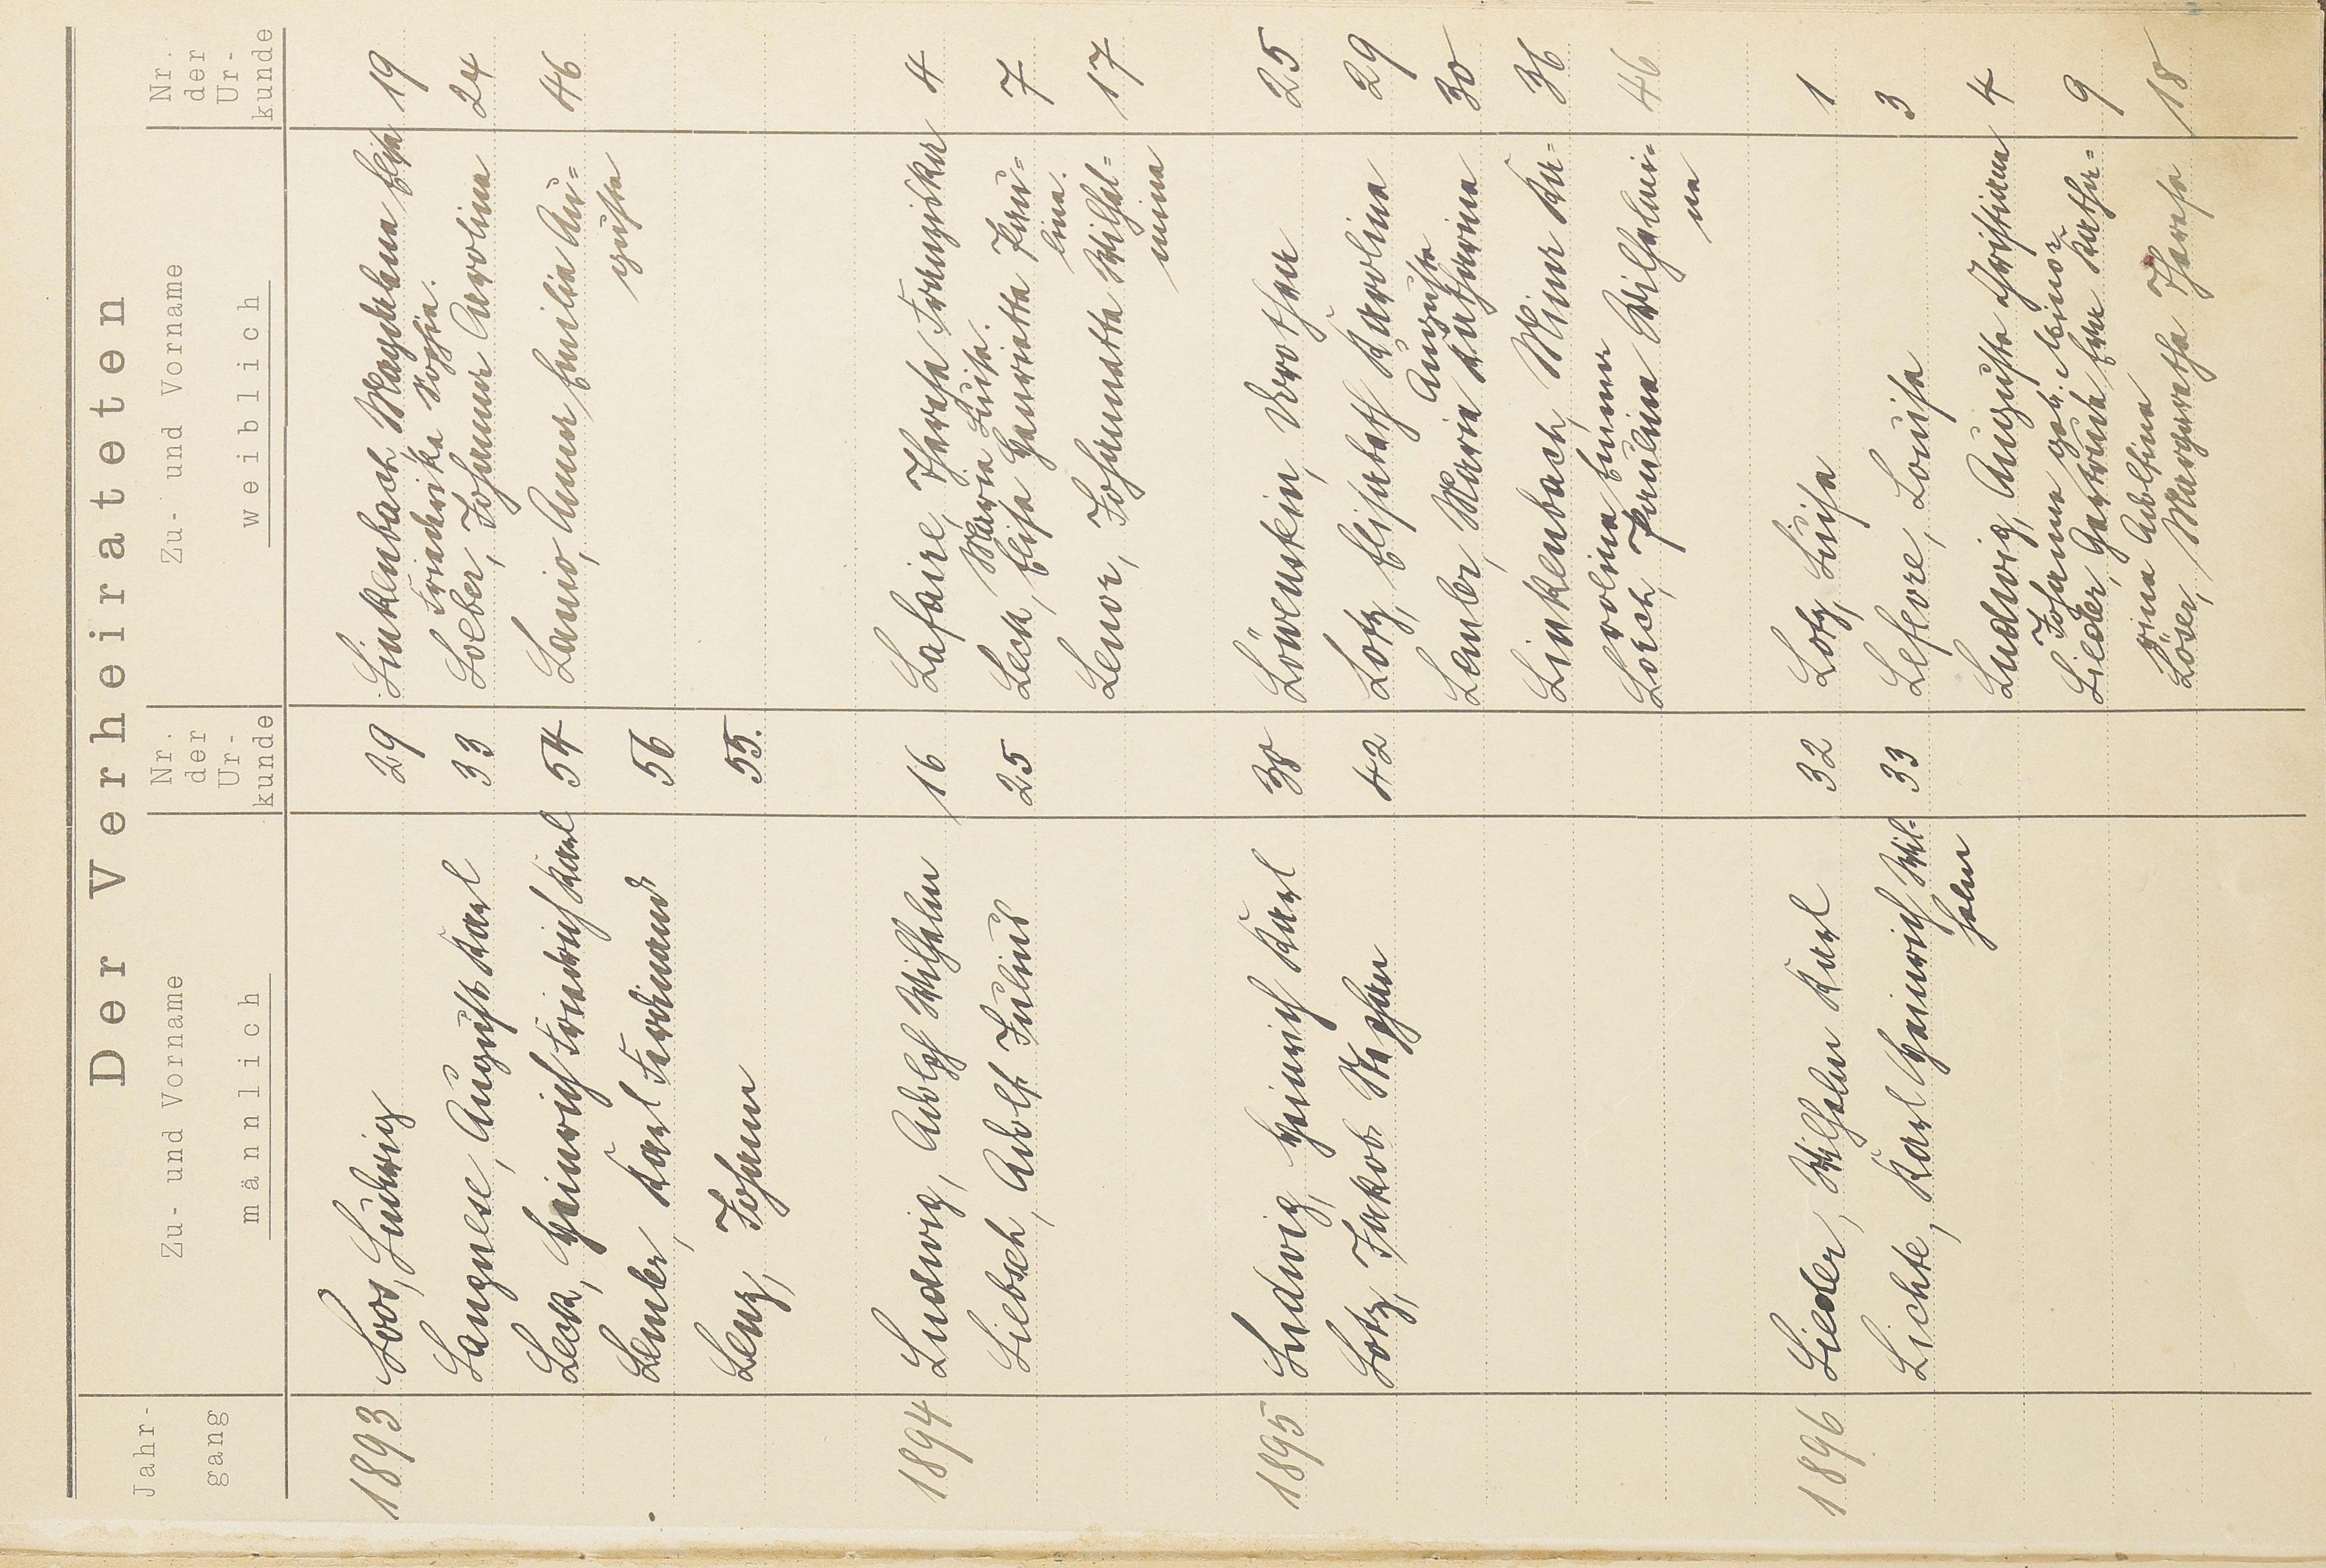 Der Verheirateten
Jahr-
gang
Zu- und Vorname
männlich
Nr.
der
Ur-
kunde
Zu- und Vorname
weiblich
Nr.
der
Ur-
kunde
1893 Loos, Ludwig 29 Linkenbach Magdalena Elise 19
Friederike Sophie.
Langnese, August Karl 33 Loeber, Johanna Caroline 24
Leck, Heinrich Friedrich Karl 54 Lanio, Anna Emilie Au- 46
guste
Lemler, Karl Ferdinand 56
Lenz, Johann 55.
1894 Ludwig, Adolf Wilhelm 16 Lafaire, Therese Franziska 4
Maria Luise.
Liebsch, Adolf Julius 25 Leck, Elise Henriette Pau- 7
line.
Lenor, Johannette Wilhel- 17
mine
1895 Ludwig, Heinrich Karl 38 Löwenstein, Dorothea 25
Lotz, Jakob Stephan 42 Lotz, Elisabeth Karoline 29
Auguste
Lemler, Marie Katharine 30
Linkenbach, Mina Ka- 36
roline Emma
Lorch, Pauline Wilhelmi- 46
ne
1896 Lieder, Wilhelm Karl 32 Lotz, Luise 1
Lichte, Karl Heinrich Wil- 33 Lefvre, Louise 3
helm
Ludwig, Auguste Christiane 4
Johanna
Lieder, Gertrude Eva Katha- 9
rina Adolfine
Löser, Margarethe Therese 18